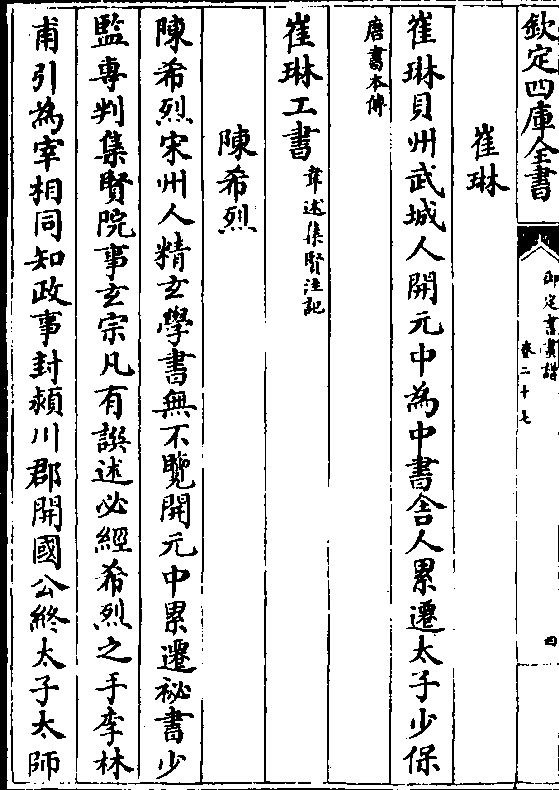 欽定四庫全書
御定書畫譜
卷二十七
四
崔琳
崔琳貝州武城人開元中為中書舍人累遷太子少保
唐書本傳
崔琳工書韋述集賢注記
陳希烈
陳希烈宋州人精玄學書無不覽開元中累遷祕書少
監專判集賢院事玄宗凡有譔述必經希烈之手李林
甫引為宰相同知政事封潁川郡開國公終太子太師